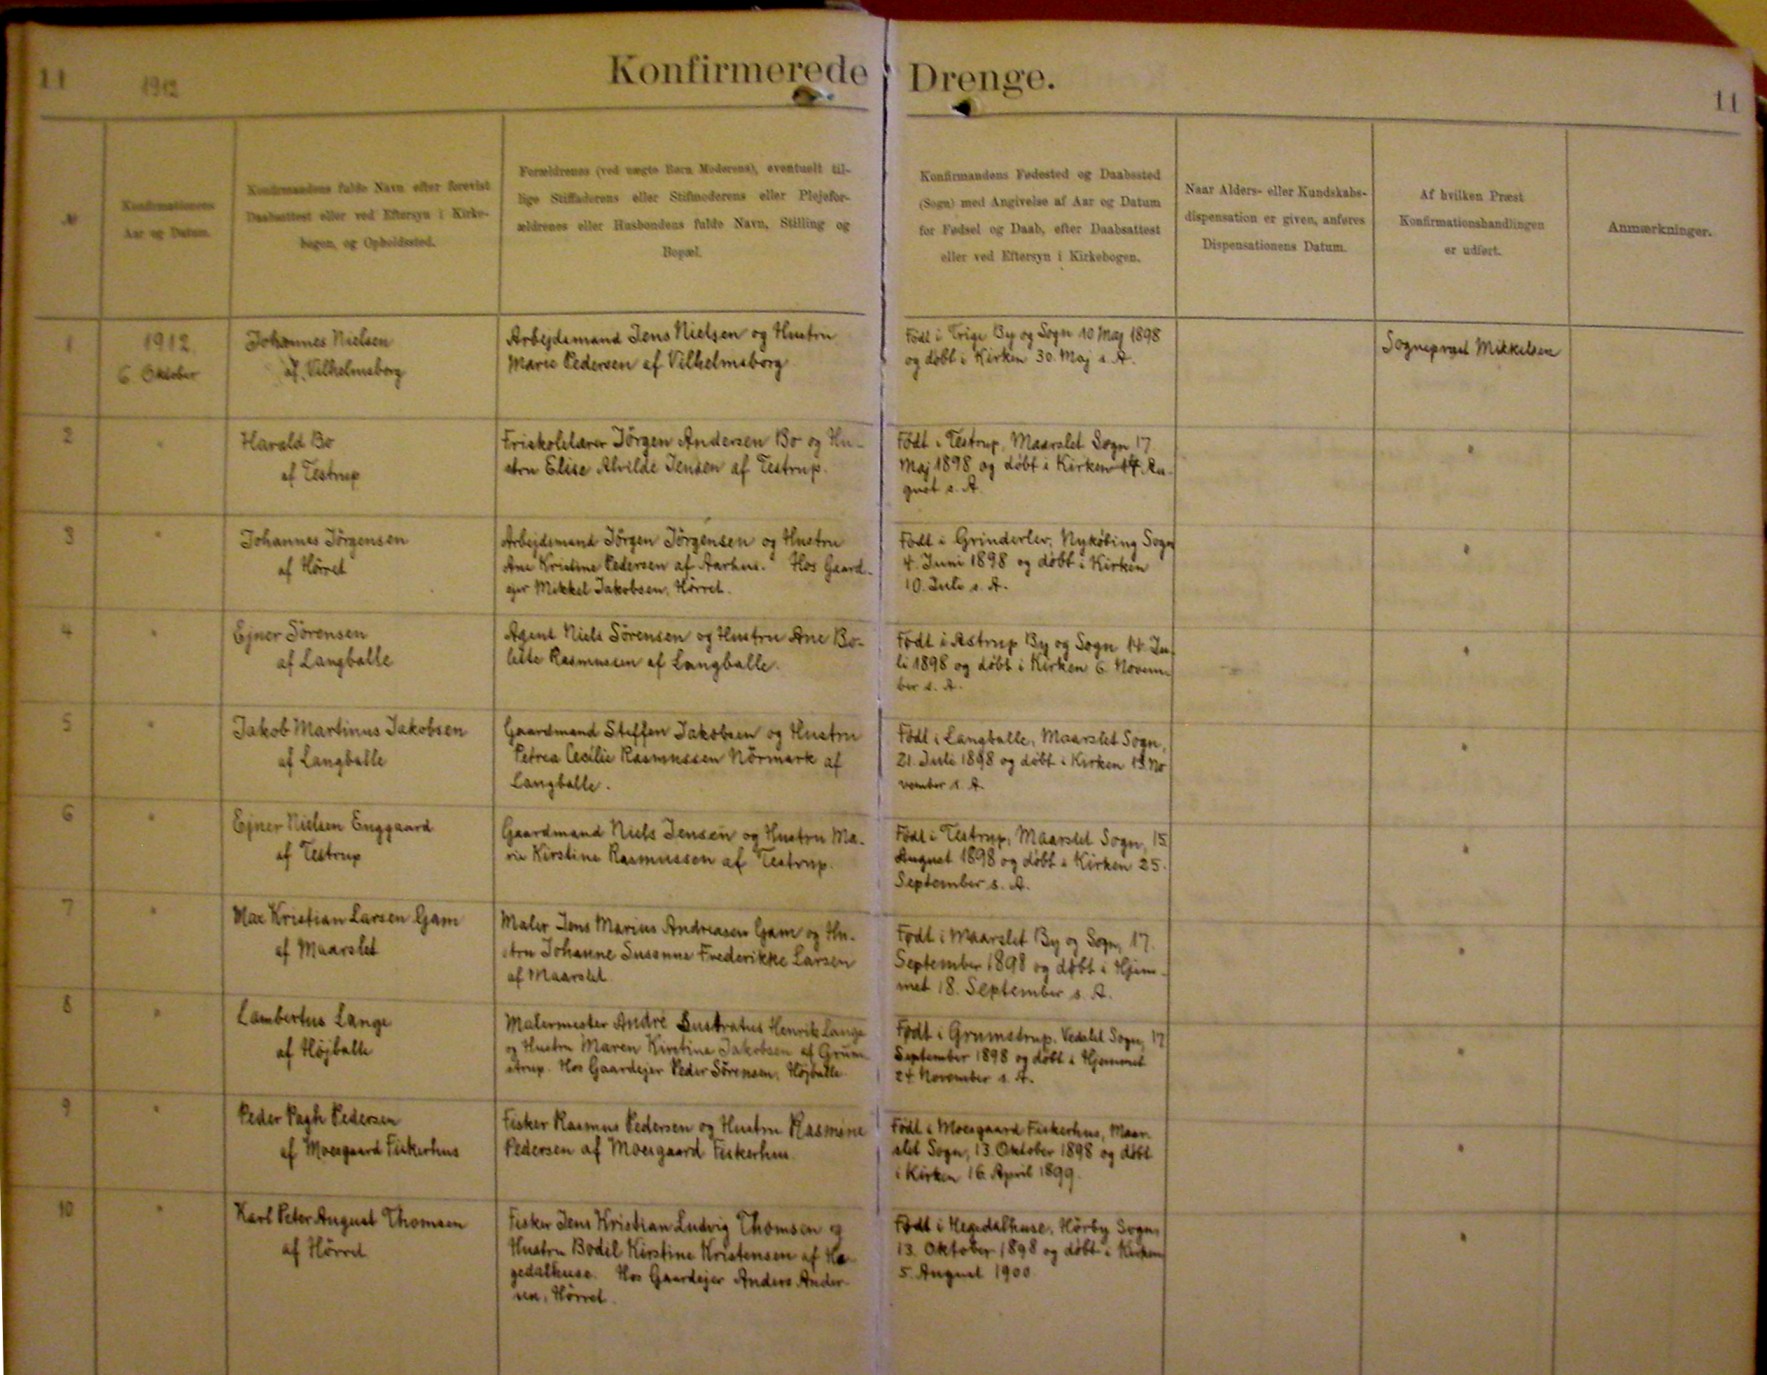 11
1912
Konfirmerede Drenge.
11
№
Konfirmationens
Aar og Datum.
Konfirmandens fulde Navn efter forevist
Daabsattest eller ved Eftersyn i Kirke-
bogen, og Opholdssted.
Forældrenes (ved uægte Børn Moderens), eventuelt til-
lige Stiffaderens eller Stifmoderens eller Plejefor-
ældrenes eller Husbondens fulde Navn, Stilling og
Bopæl.
Konfirmandens Fødested og Daabssted
(Sogn) med Angivelse af Aar og Datum
for Fødsel og Daab, efter Daabsattest
eller ved Eftersyn i Kirkebogen.
Naar Alders- eller Kundskabs-
dispensation er given, anføres
Dispensationens Datum.
Af hvilken Præst
Konfirmationshandlingen
er udført.
Anmærkninger.
1
1912
6. Oktober
Johannes Nielsen
af Vilhelmsborg
Arbejdsmand Jens Nielsen og Hustru
Marie Pedersen af Vilhelmsborg
Født i Trige By og Sogn 10 Maj 1898
og døbt i Kirken 30. Maj s. A.
Sognepræst Mikkelsen
2
"
Harald Bo
af Testrup
Friskolelærer Jörgen Andersen Bo og Hu-
stru Elise Alvilde Jensen af Testrup.
Født i Testrup, Maarslet Sogn 17
Maj 1898 og døbt i Kirken 14. Au-
gust s. A.
"
3
"
Johannes Jörgensen
af Hörret
Arbejdsmand Jörgen Jörgensen og Hustru
Ane Kristine Pedersen af Aarhus. Hos Gaard-
ejer Mikkel Jakobsen, Hörret.
Født i Grinderlev, Nykøbing Sogn
4. Juni 1898 og døbt i Kirken
10. Juli s. A.
"
4
"
Ejner Sörensen
af Langballe
Agent Niels Sörensen og Hustru Ane Bo-
lette Rasmussen af Langballe.
Født i Astrup By og Sogn 14. Ju-
li 1898 og døbt i Kirken 6. Novem-
ber s. A.
"
5
"
Jakob Martinus Jakobsen
af Langballe
Gaardmand Steffen Jakobsen og Hustru
Petrea Cecilie Rasmussen Nörmark af
Langballe.
Født i Langballe, Maarslet Sogn,
21. Juli 1898 og døbt i Kirken 13. No
vember s. A.
"
6
"
Ejner Nielsen Enggaard
af Testrup
Gaardmand Niels Jensen og Hustru Ma-
rie Kirstine Rasmussen af Testrup.
Født i Testrup, Maarslet Sogn, 15.
August 1898 og døbt i Kirken 25.
September s. A.
"
7
"
Max Kristian Larsen Gam
af Maarslet
Maler Jens Marius Andreasen Gam og Hu-
stru Johanne Susanne Frederikke Larsen
af Maarslet
Født i Maarslet By og Sogn, 17.
September 1898 og døbt i Hjem-
met 18. September s. A.
"
8
"
Lambertus Lange
af Højballe
Malermester André Sustratus Henrik Lange
og Hustru Maren Kirstine Jakobsen af Grum-
strup. Hos Gaardejer Peder Sörensen, Højballe
Født i Grumstrup, Vedslet Sogn, 17
September 1898 og døbt i Hjemmet
24 November s. A.
"
9
"
Peder Pagh Pedersen
af Moesgaard Fiskerhus
Fisker Rasmus Pedersen og Hustru Rasmine
Pedersen af Moesgaard Fiskerhus.
Født i Moesgaard Fiskerhus, Maar-
slet Sogn, 13. Oktober 1898 og døbt
i Kirken 16. April 1899.
"
10
"
Karl Peter August Thomsen
af Hörret
Fisker Jens Kristian Ludvig Thomsen og
Hustru Bodil Kirstine Kristensen af He-
gedalhuse. Hos Gaardejer Anders Ander-
sen, Hörret.
Født i Hegedalhuse, Hörby Sogn,
13. Oktober 1898 og døbt i Kirken
5. August 1900
"